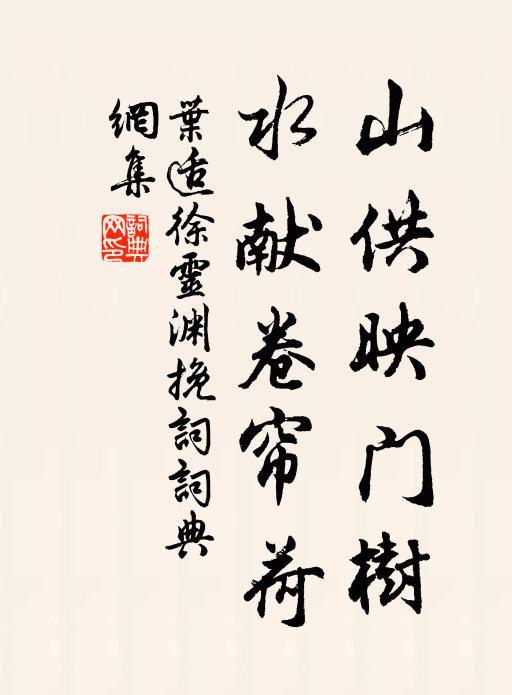 山供映门樹
水献卷帘荷
葉适徐靈渊挽詞詞典
網集
詞典網印